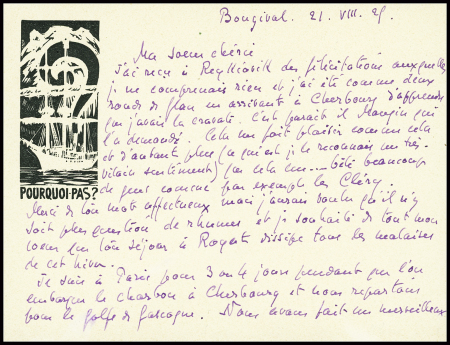 Bougival. 21. VIII. 25.
Ma soeur chérie
J'ai reçu à Reykiavik des félicitations auxquelles
je ne comprenais rien et j'ai été comme deux
ronds de flan en arrivant à Cherbourg d'apprendre
que j'avais la cravate. C'est paraît il Mangin qui
l'a demandé. Cela me fait plaisir comme cela
et d'autant plus (ce qui est je le reconnais un très
vilain sentiment) que cela un... bêté beaucoup
de gens comme par exemple les Cléry.
Merci de ton mot affectueux mais j'aurais voulu qu'il n'y
soit plus question de rhumes et je souhaite de tout mon
coeur que ton séjour à Royat dissipe tous les malaises
de cet hiver.
Je suis à Paris pour 3 ou 4 jours pendant que l'on
embarque le charbon à Cherbourg et nous repartons
pour le golfe de Gascogne. Nous avons fait un merveilleux
POURQUOI-PAS?